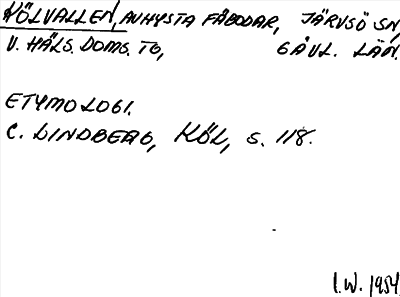 KÖLVALLEN, AVHYSTA FÄBODAR, JÄRVSÖ SN,
V. HÄLS. DOMS. TG, GÄVL. LÄN.
ETYMOLOGI.
C. LINDBERG, KÖL, S. 118.
I.W. 1954